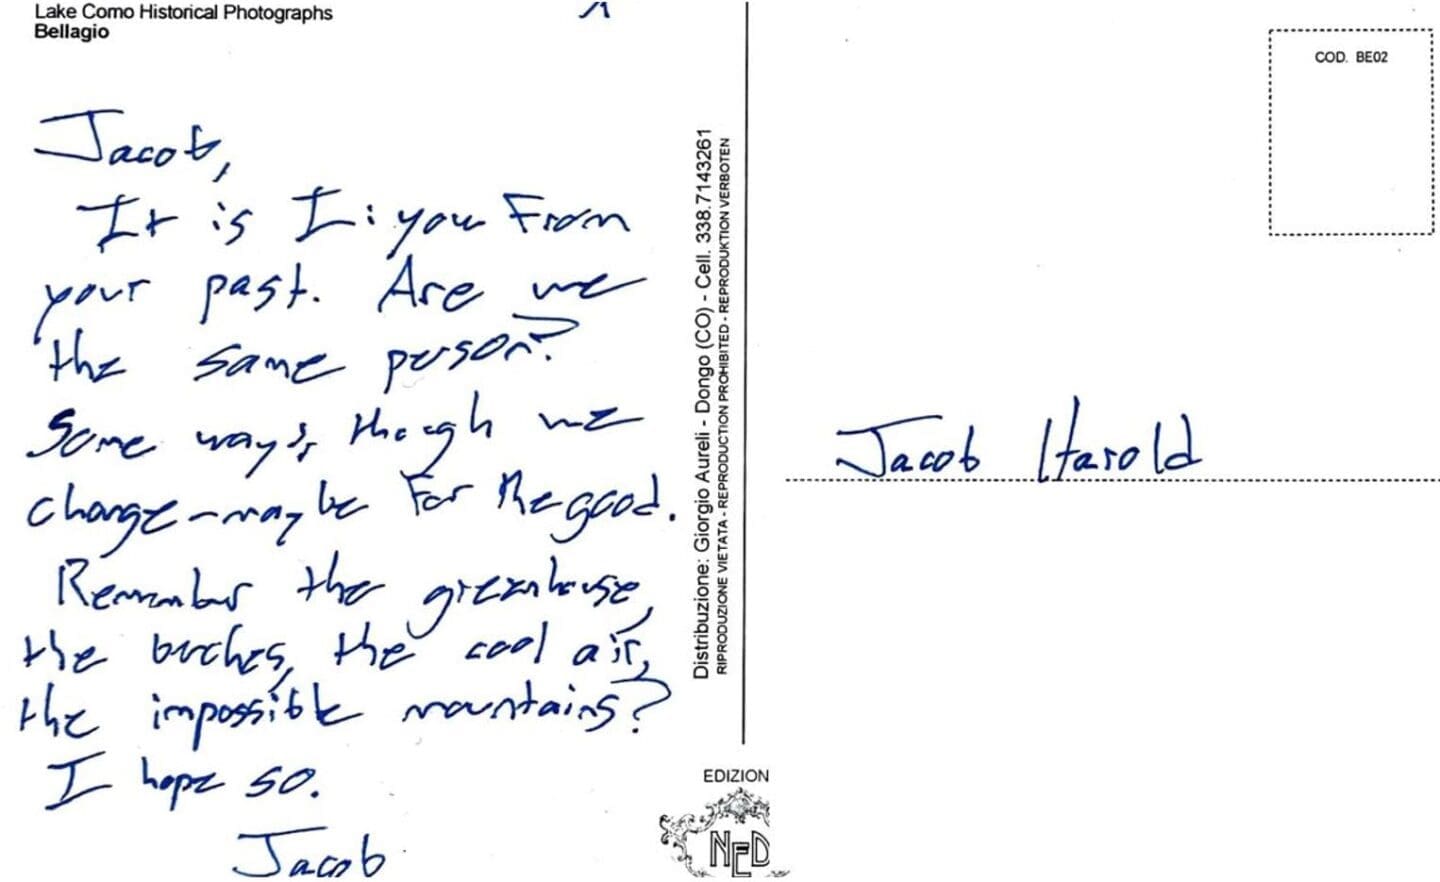 Lake Como Historical Photographs
Bellagio
Jacob,
It is I: you from
your past. Are we
the same person?
Some ways, though we
change-maybe for the good.
Remember the greenhouse,
the birches, the cool air,
the impossible mountains?
I hope so.
Jacob
Distribuzione: Giorgio Aureli - Dongo (CO) - Cell. 338.7143261
RIPRODUZIONE VIETATA - REPRODUCTION PROHIBITED - REPRODUKTION VERBOTEN
EDIZION
NED
COD. BE02
Jacob Harold